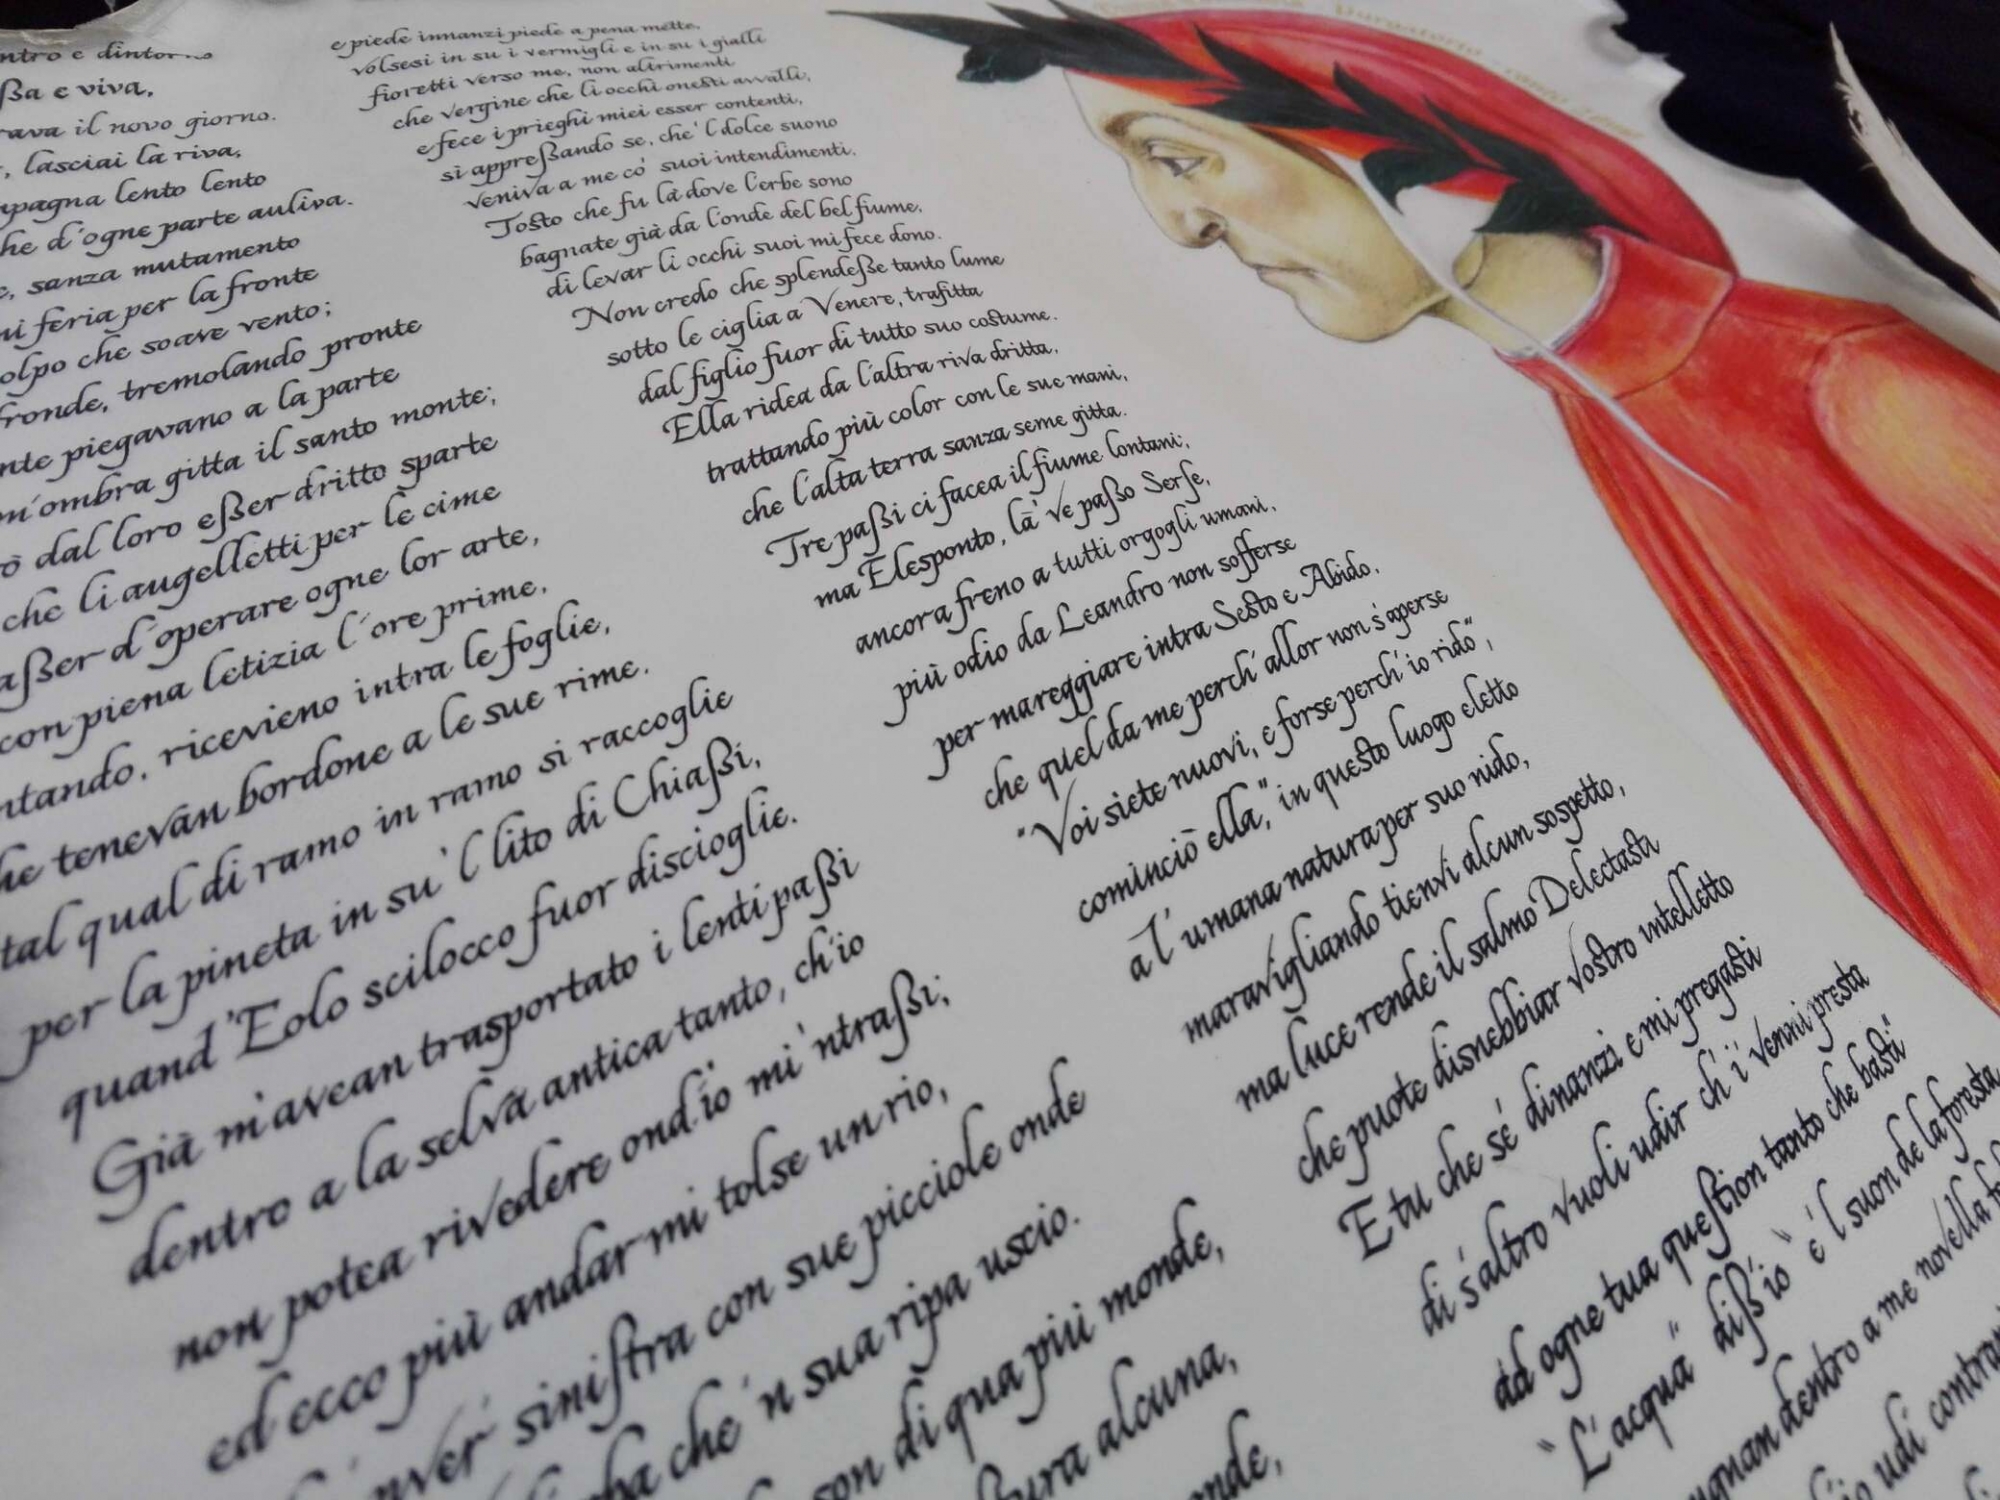 ntro e dintorno
ßa e viva,
rava il novo giorno.
, lasciai la riva,
mpagna lento lento
he d'ogne parte auliva.
e, sanza mutamento
mi feria per la fronte
olpo che soave vento;
fronde, tremolando pronte
nte piegavano a la parte
m'ombra gitta il santo monte;
ò dal loro eßer dritto sparte
che li augelletti per le cime
aßer d'operare ogne lor arte,
con piena letizia l'ore prime,
ntando, ricevieno intra le foglie,
he tenevan bordone a le sue rime.
tal qual di ramo in ramo si raccoglie
per la pineta in su 'l lito di Chiaßi,
quand'Eolo scilocco fuor discioglie.
Già m'avean trasportato i lenti paßi
dentro a la selva antica tanto, ch'io
non potea rivedere ond'io mi 'ntraßi;
ed ecco più andar mi tolse un rio,
nver' sinistra con sue picciole onde
ba che 'n sua ripa uscio.
son di qua più monde,
tura alcuna,
onde,
e piede innanzi piede a pena mette,
volsesi in su i vermigli e in su i gialli
fioretti verso me, non altrimenti
che vergine che li occhi onesti avvalli;
e fece i prieghi miei esser contenti,
sì appreßando sé, che 'l dolce suono
veniva a me co' suoi intendimenti.
Tosto che fu là dove l'erbe sono
bagnate già da l'onde del bel fiume,
di levar li occhi suoi mi fece dono.
Non credo che splendeße tanto lume
sotto le ciglia a Venere, trafitta
dal figlio fuor di tutto suo costume.
Ella ridea da l'altra riva dritta,
trattando più color con le sue mani,
che l'alta terra sanza seme gitta.
Tre paßi ci facea il fiume lontani;
ma Elesponto, là 've paßò Serse,
ancora freno a tutti orgogli umani,
più odio da Leandro non sofferse
per mareggiare intra Sesto e Abido,
che quel da me perch'allor non s'aperse
"Voi siete nuovi, e forse perch'io rido",
cominciò ella, "in questo luogo eletto
a l'umana natura per suo nido,
maravigliando tienvi alcun sospetto,
ma luce rende il salmo Delectasti
che puote disnebbiar vostro intelletto
E tu che se' dinanzi e mi pregasti
di s'altro vuoli udir ch'i' venni presta
ad ogne tua question tanto che basti"
"L'acqua" diß'io "e 'l suon de la foresta
ugnan dentro a me novella
io udi contrar